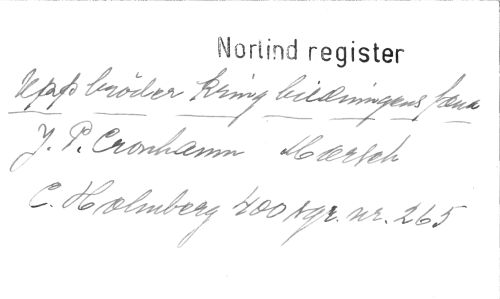 Norlind register
Upp bröder kring bildningens fana
J. P. Cronhamn Marsch
C. Holmberg 400 sgr. nr. 265